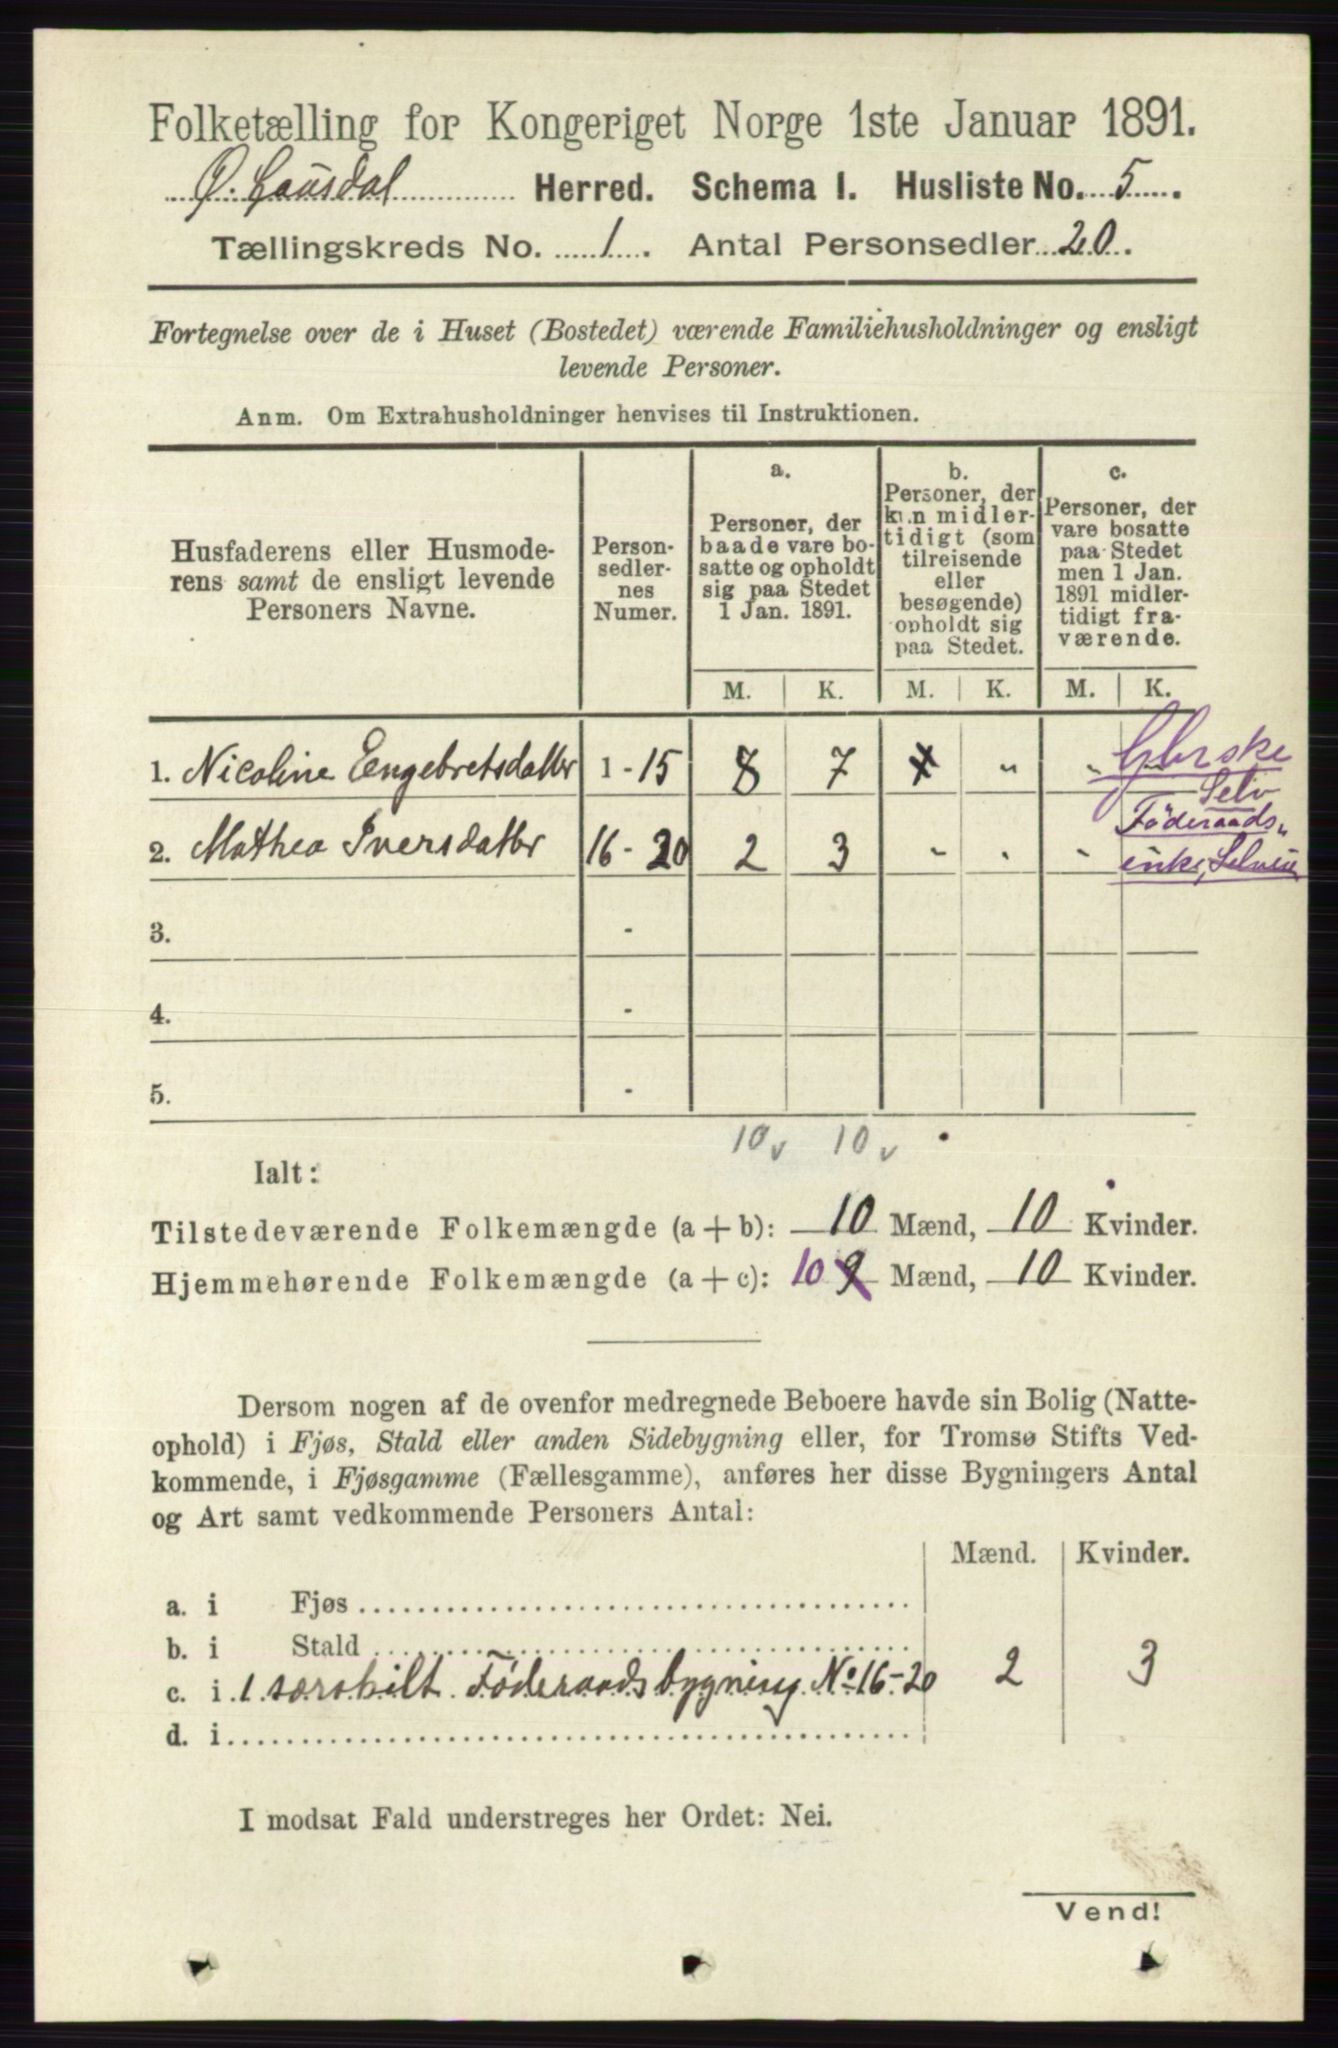 Folketælling for Kongeriget Norge 1ste Januar 1891.
Ø. Gausdal Herred. Schema I. Husliste No. 5.
Tællingskreds No. 1. Antal Personsedler 20.
Fortegnelse over de i Huset (Bostedet) værende Familiehusholdninger og ensligt
levende Personer.
Anm. Om Extrahusholdninger henvises til Instruktionen.
Husfaderens eller Husmode-
rens samt de ensligt levende
Personers Navne.
Person-
sedler-
nes
Numer.
a.
Personer, der
baade vare bo-
satte og opholdt
sig paa Stedet
1 Jan. 1891.
b.
Personer, der
kun midler-
tidigt (som
tilreisende
eller
besøgende)
opholdt sig
paa Stedet.
c.
Personer, der
vare bosatte
paa Stedet
men 1 Jan.
1891 midler-
tidigt fra-
værende.
M. K. M. K. M. K.
1. Nicoline Engebretsdatter 1 - 15 8 7 " -
Selv
Föderaads-
2. Mathea Iversdatter 16 - 20 2 3 - - -
enke,
3. -
4. -
5. -
10 v 10 v
Ialt:
Tilstedeværende Folkemængde (a + b): 10 Mænd, 10 Kvinder.
Hjemmehørende Folkemængde (a + c): 10 9 Mænd, 10 Kvinder.
Dersom nogen af de ovenfor medregnede Beboere havde sin Bolig (Natte-
ophold) i Fjøs, Stald eller anden Sidebygning eller, for Tromsø Stifts Ved-
kommende, i Fjøsgamme (Fællesgamme), anføres her disse Bygningers Antal
og Art samt vedkommende Personers Antal:
Mænd. Kvinder.
a. i Fjøs
b. i Stald
c. i 1 særskilt Föderaadsbygning No 16-20 2 3
d. i
I modsat Fald understreges her Ordet: Nei.
Vend!